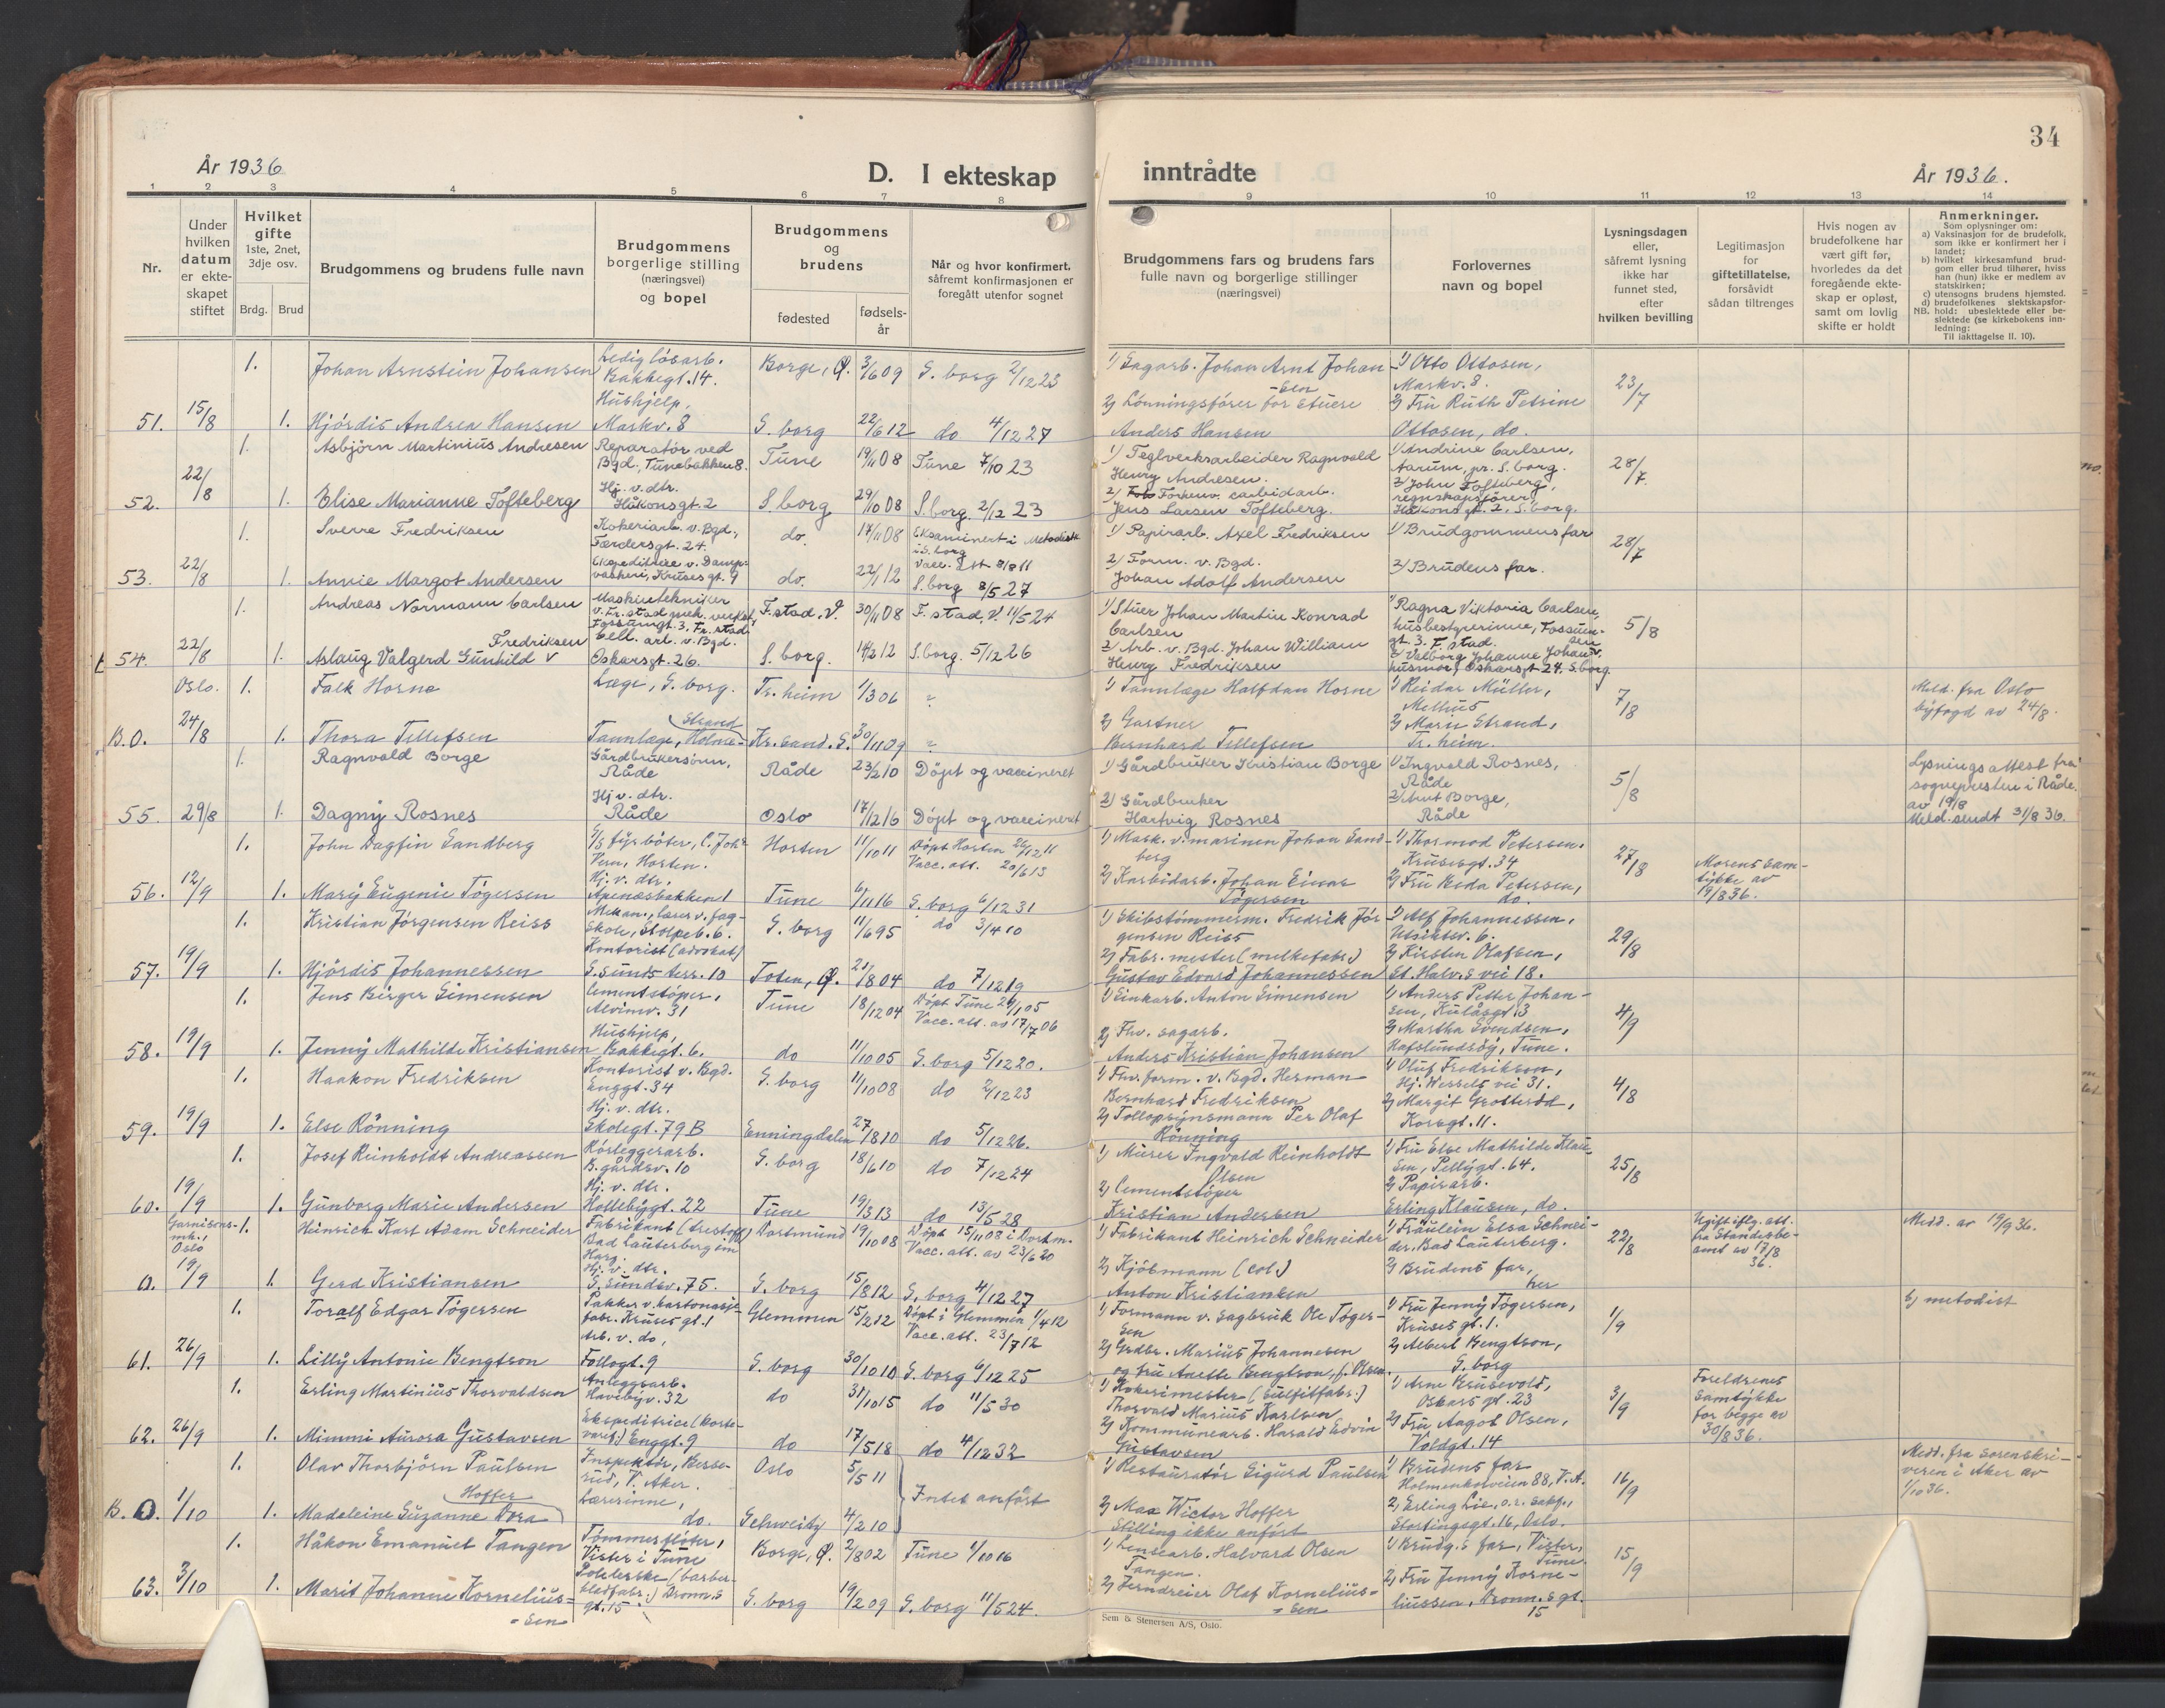 34
År 1936
D. I ekteskap inntrådte
År 1936.
1 2 3 4 5 6 7 8 9 10 11 12 13 14
Nr.
Under hvilken datum er ekteskapet stiftet
Hvilket gifte
1ste, 2net, 3dje osv.
Brdg. Brud
Brudgommens og brudens fulle navn
Brudgommens borgerlige stilling (næringsvei) og bopel
Brudgommens og brudens
fødested
fødselsår
Når og hvor konfirmert, såfremt konfirmasjonen er foregått utenfor sognet
Brudgommens fars og brudens fars fulle navn og borgerlige stillinger (næringsvei)
Forlovernes navn og bopel
Lysningsdagen eller, såfremt lysning ikke har funnet sted, efter hvilken bevilling
Legitimasjon for giftetillatelse, forsåvidt sådan tiltrenges
Hvis nogen av brudefolkene har vært gift før, hvorledes da det foregående ekteskap er opløst, samt om lovlig skifte er holdt
Anmerkninger.
Som oplysninger om:
a) Vaksinasjon for de brudefolk, som ikke er konfirmert her i landet;
b) hvilket kirkesamfund brudgom eller brud tilhører, hviss han (hun) ikke er medlem av statskirken;
c) utensogns brudens hjemsted.
d) brudefolkenes slektskapsforhold: ubeslektede eller beslektede (se kirkebokens innledning:
NB. Til iakttagelse II. 10).
1. Johan Arnstein Johansen Ledig løsarb. Bakkegt. 14. Borge, Ø. 3/6 09 S. borg 2/12 23 1) Sagarb. Johan Arnt Johansen 1) Otto Ottosen, Markv. 8. 23/7
51. 15/8 1. Hjørdis Andrea Hansen Hushjelp, Markv. 8 S. borg 22/6 12 do 4/12 27 2) Lønningsfører for stuere Anders Hansen 2) Fru Ruth Petrine Ottosen, do.
1. Asbjørn Martinius Andresen Reparatør ved Bgd., Tunebakken 8. Tune 19/11 08 Tune 7/10 23 1) Teglverksarbeider Ragnvald Henry Andresen. 1) Andrine Carlsen, Aarum, pr. S. borg. 28/7.
52. 22/8 1. Elise Marianne Tofteberg Hj. v. dtr. Håkonsgt. 2 S. borg 29/10 08 S. borg. 2/12 23 2) Forhenv. carbidarb. Jens Larsen Tofteberg. 2) John Tofteberg, regnskapsfører, Håkonsgt. 2, S. borg.
1. Sverre Fredriksen Kokeriarb. v. Bgd., Færdersgt. 24. do. 17/11 08 Eksaminert i Metodistk i S. borg Vacc. att 8/8 11 1) Papirarb. Axel Fredriksen 1) Brudgommens far 28/7
53. 22/8 1. Annie Margot Andersen Ekspeditrice v. Dampvaskeri, Kruses gt. 9 do. 22/1 12 S. borg 8/5 27 2) Form. v. Bgd. Johan Adolf Andersen 2) Brudens far.
1. Andreas Normann Carlsen Maskintekniker v. Fr. stad mek. verkst, Fossumgt. 3, Fr. stad F. stad. V. 30/11 08 F. stad, V. 11/5 24 1) Stuer Johan Martin Konrad Carlsen 1) Ragna Viktoria Carlsen, husbestyrerinne, Fossumgt. 3. F. stad. 5/8
54. 22/8 1. Aslaug Valgerd Gunhild Fredriksen Cell. arb. v. Bgd. Oskarsgt. 26. S. borg. 14/2 12 S. borg. 5/12 26 2) Arb. v. Bgd. Johan William Henry Fredriksen 2) Valborg Johanne Johansen, husmor, Oskarsgt 24. S. borg.
Oslo. 1. Falk Horne Læge, S. borg. Tr. heim 1/3 06 1) Tannlæge Halfdan Horne 1) Reidar Müller, Melhus 7/8 Meld. fra Oslo byfogd av 24/8.
B.O. 24/8 1. Thora Tellefsen Tannlæge, Holme-Strand Kr. sand. S. 30/11 09 2) Gartner Bernhard Tellefsen 2) Marie Strand, Tr. heim.
1. Ragnvald Borge Gårdbrukersønn, Råde Råde 23/2 10 Døpt og vaccineret 1) Gårdbruker Kristian Borge 1) Ingvald Rosnes, Råde 5/8 Lysningsattest fra sogneprsten i Råde. av 19/8 Meld. sendt 31/8 36.
55. 29/8 1. Dagny Rosnes Hj v. dtr. Råde Oslo 17/12 16 Døpt og vaccineret 2) Gårdbruker Hartvig Rosnes 2) Arnt Borge, Råde
1. John Dagfin Sandberg fyrbøter, Horten. Horten 11/10 11 Døpt Horten 26/12 11 Vacc. att. 20/6 13 1) Mask. v. marinen Johan Sandberg 1) Thormod Petersen. Krusesgt. 34 27/8 Morens samtykke av 19/8 36.
56. 12/9 1. Mary Eugenie Tøgersen Hj. v. dtr. Apenesbakken 1 Tune 6/11 16 S. borg 6/12 31 2) Karbidarb. Johan Einar Tøgersen 2) Fru Beda Petersen, do.
1. Kristian Jørgensen Reiss Mekan., lærer v. fagskole, Stolpeb. 6. S. borg 11/6 95 do 3/4 10 1) Skibstømmerm. Fredrik Jørgensen Reiss 1) Alf Johannessen, Utsiktsv. 6. 29/8
57. 19/9 1. Hjørdis Johannessen Kontorist (advokat) S. sunds terr. 10 Toten, Ø. 21/8 04 do 7/12 19 2) Fabr. mester (melkefabr.) Gustav Edvard Johannessen 2) Kirsten Olafsen, St. Halv. s vei 18.
1. Jens Birger Simensen Cementstøper, Alvimv. 31 Tune 18/12 04 Døpt Tune 29/1 05 Vacc. att. av 17/7 06 1) Sinkarb. Anton Simensen 1) Anders Petter Johansen, Kulåsgt. 3 4/9
58. 19/9 1. Jenny Mathilde Kristiansen Hushjelp, Bakkegt. 6. do 11/10 05 S. borg 5/12 20. 2) Fhv. sagarb. Anders Kristian Johansen 2) Martha Svendsen, Hafslundsøy, Tune.
1. Haakon Fredriksen Kontorist v. Bgd. Enggt. 34 S. borg 11/10 08 do 2/12 23 1) Fhv. form. v. Bgd. Herman Bernhard Fredriksen 1) Oluf Fredriksen, Hj. Wessels vei 31. 4/8
59. 19/9 1. Else Rønning Hj. v. dtr. Skolegt. 79 B Enningdalen 27/8 10 do 5/12 26. 2) Tolloppsynsmann Per Olaf Rønning 2) Margit Grotterød, Korsgt. 11.
1. Josef Reinholdt Andreassen Rørleggerarb. B. gårdsv. 10 S. borg 18/6 10 do 7/12 24 1) Murer Ingvald Reinholdt Olsen 1) Fru Else Mathilde Klausen, Pellygt. 64. 25/8
60. 19/9 1. Gunborg Marie Andersen Hj. v. dtr. Hollebygt. 22 Tune 19/3 13 do 13/5 28 2) Cementstøper Kristian Andersen 2) Papirarb. Erling Klausen, do.
Garnisonsmh., Oslo 1. Heinrich Kurt Adam Schneider Fabrikant (trestoff) Bad Lauterberg im Harz. Dortmund 19/10 08 Døpt 15/11 08 i Dortm. Vacc. att. av 23/6 20 1) Fabrikant Heinrich Schneider 1) Fräulein Elsa Schneider. Bad Lauterberg. 22/8 Ugift iflg. att. fra Standesbeamt av 17/8 36. Medd. av 19/9 36.
a. 19/9 1. Gerd Kristiansen Hj. v. dtr. S. sundsv. 75. S. borg 15/8 12 S. borg 4/12 27 2) Kjøbmann (col.) Anton Kristiansen 2) Brudens far, her
1. Toralf Edgar Tøgersen Pakker v. kartonasjefabr. Kruses gt. 1 Glemmen 15/2 12 Døpt i Glemmen 1/4 12 Vacc. att. 23/7 12 1) Formann v. Sagbruk Ole Tøgersen 1) Fru Jenny Tøgersen, Kruses gt. 1. 1/9 b) metodist
61. 26/9 1. Lilly Antonie Bengtson Arb. v. do, Follogt. 9 S. borg 30/10 10 S. borg 6/12 25 2) Grdbr. Marius Johannesen og fru Anette Bengtson, f. Olsen. 2) Albert Bengtson, S. borg
1. Erling Martinius Thorvaldsen Anleggsarb. Havebyv. 32 do 31/10 15 do 11/5 30 1) Kokerimester (Sulfitfabr.) Thorvald Marius Karlsen 1) Arne Brusevold, Oskars gt. 23 3/9 Foreldrenes samtykke for begge av 30/8 36.
62. 26/9 1. Mimmi Aurora Gustavsen Ekspeditrice (kortevaref.) Enggt. 9 do 17/5 18 do 4/12 32 2) Kommunearb. Harald Edvin Gustavsen 2) Fru Aagot Olsen, Voldgt. 14
1. Olav Thorbjørn Paulsen Inspektør, Besserud, V. Aker. Oslo 5/5 11 Intet anført 1) Restauratør Sigurd Paulsen 1) Brudens far Holmenkolveien 88, V. A. 16/9 Medd. fra sorenskriveren i Aker av 1/10 36.
B. O. 1/10 1. Madeleine Suzanne Dora Hoffer Lærerinne, do. Schweitz 4/2 10 2) Max Wictor Hoffer Stilling ikke anført 2) Erling Lie, o.r. sakf., Stortingsgt. 16, Oslo.
1. Håkon Emanuel Tangen Tømmerfløter, Vister i Tune Borge, Ø. 2/8 02 Tune 1/10 16 1) Lensearb. Halvard Olsen Tangen. 1) Brudg.s far, Vister, Tune 15/9
63. 3/10 1. Marit Johanne Korneliussen Polererske (barberbladfabr.) Dronn.s gt. 15 S. borg 19/2 09 S. borg 11/5 24. 2) Jerndreier Olaf Korneliussen 2) Fru Jenny Korneliussen, Dronn.s gt. 15
Sem & Stenersen A/S, Oslo.